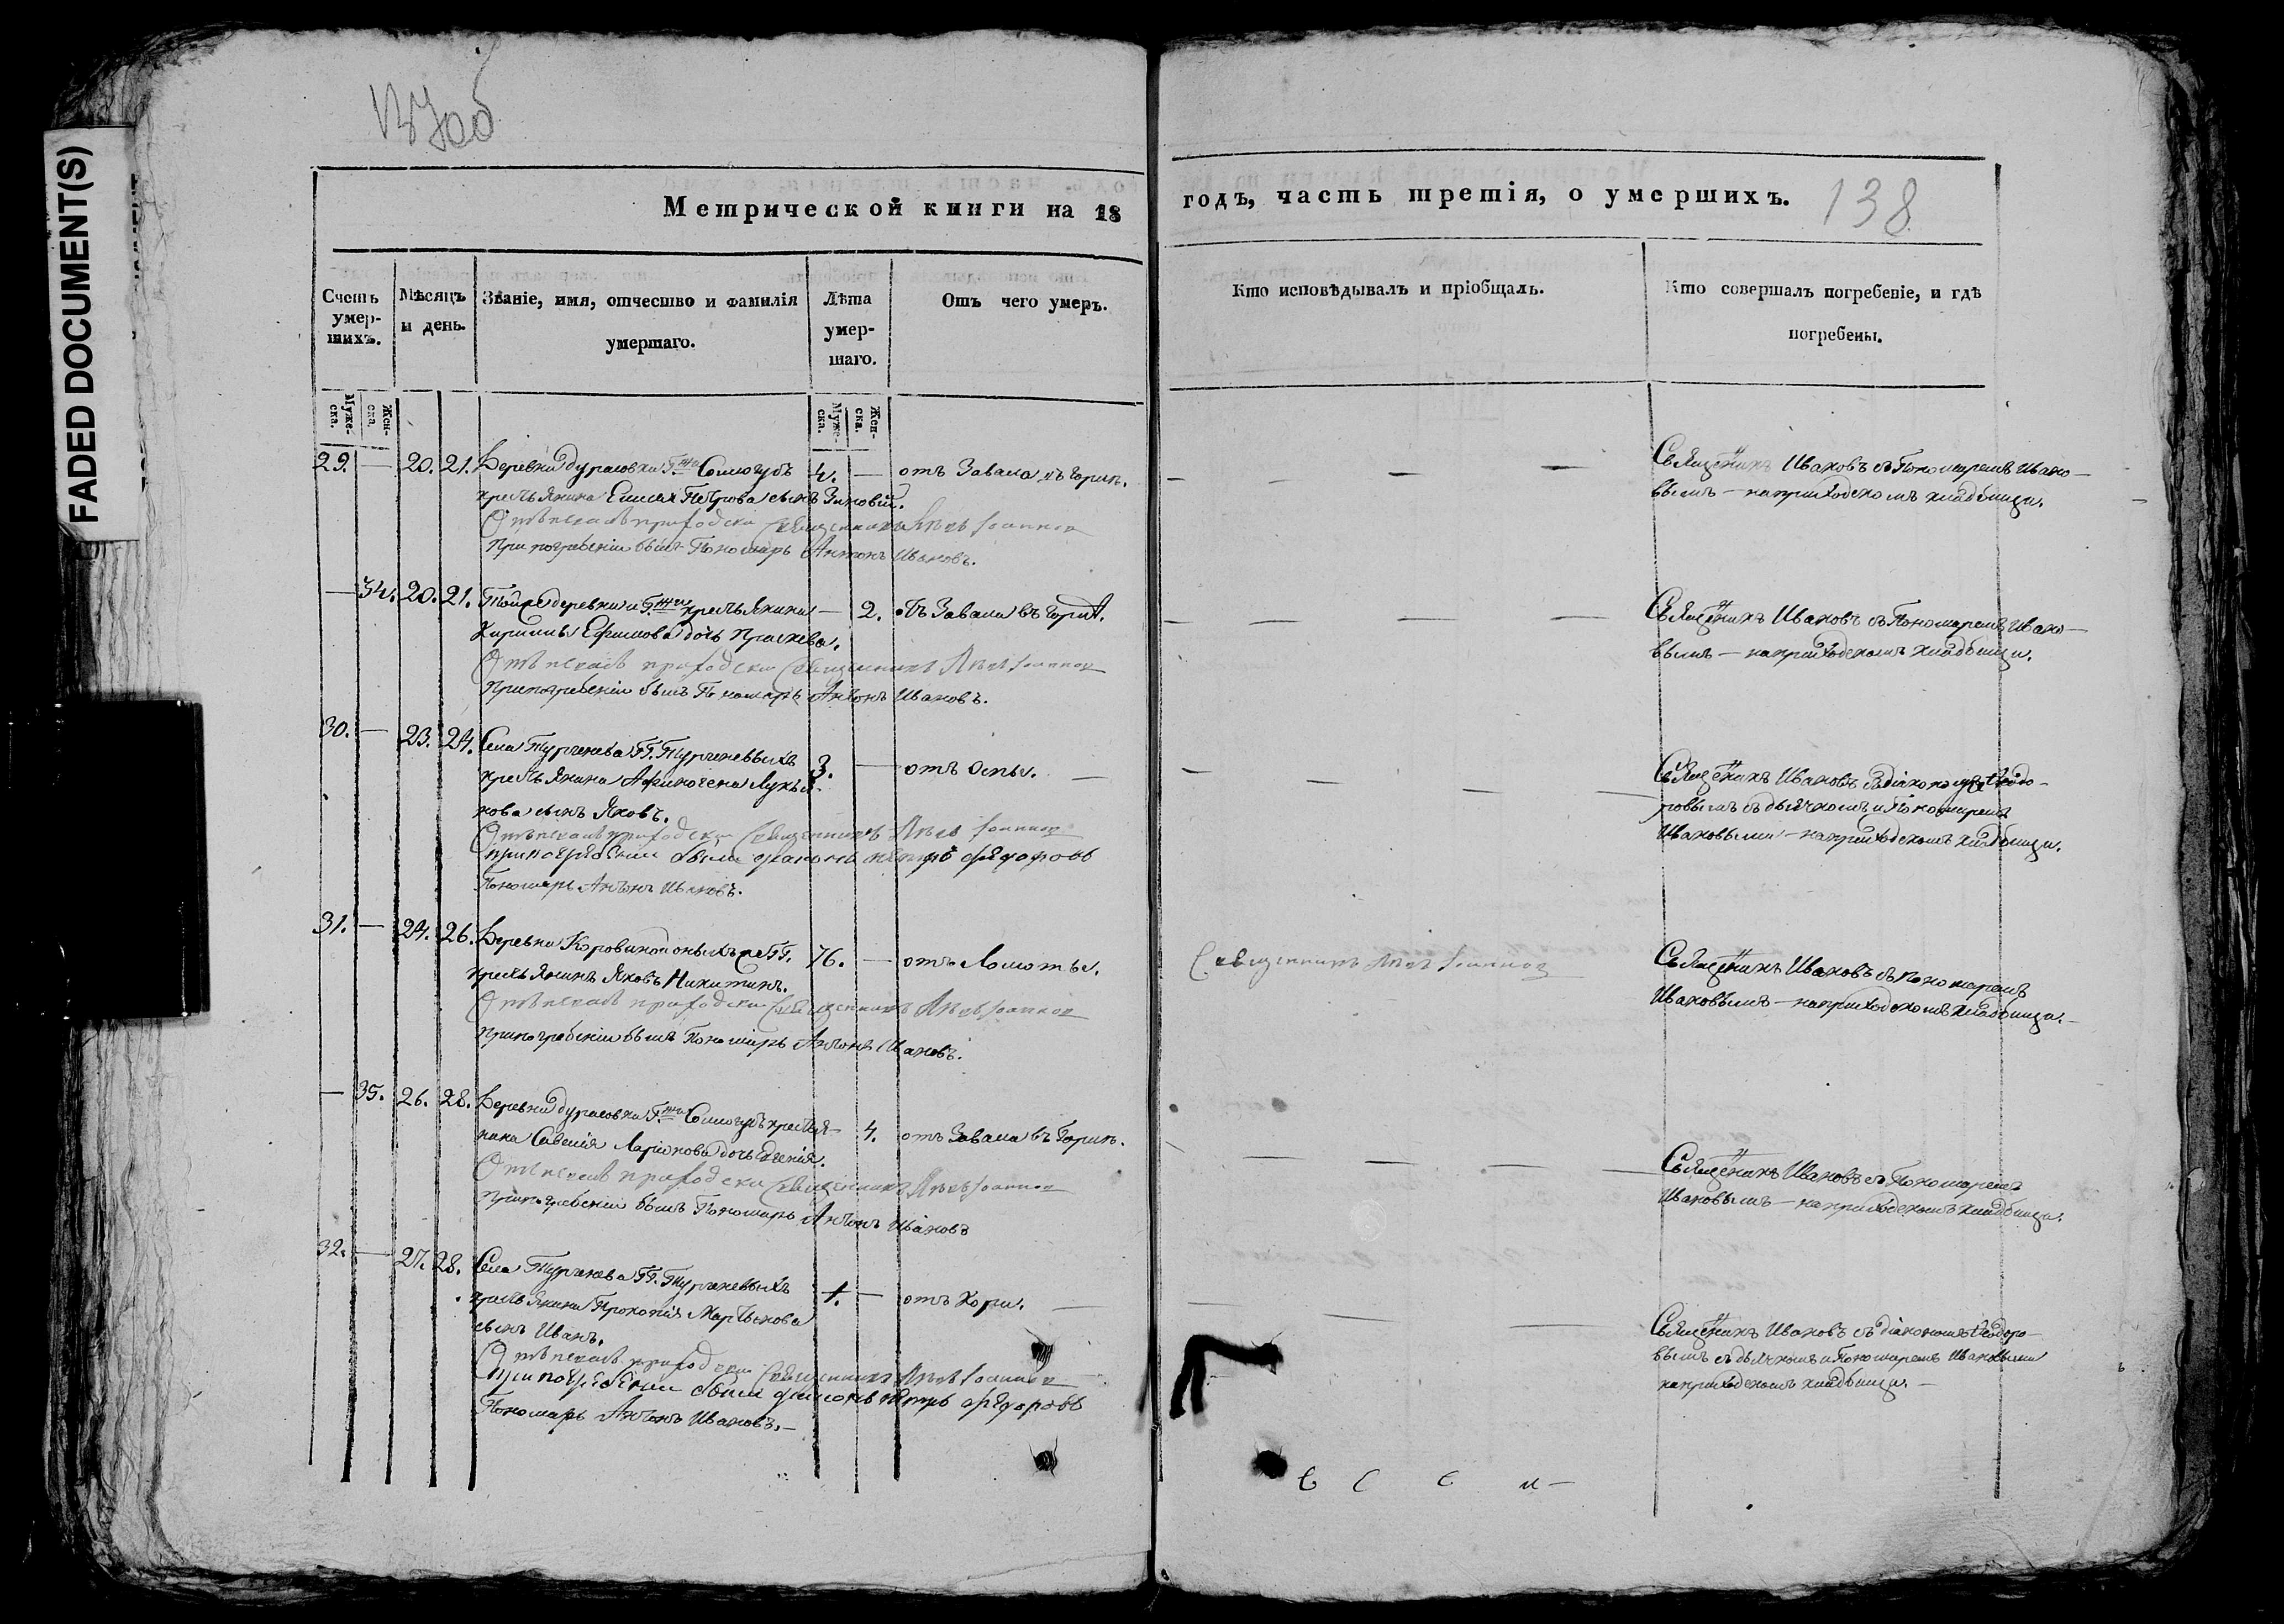 FADED DOCUMENT(S)
137об
138
Метрической книги на 18
годъ, часть третія, о умершихъ.
Счетъ умер-шихъ.
Мѣсяцъ и день.
Званіе, имя, отчество и фамилія умершаго.
Лѣта умер-шаго.
Отъ чего умеръ.
Кто исповѣдывалъ и пріобщалъ.
Кто совершалъ погребеніе, и гдѣ погребены.
Муже-ска.
Жен-ска.
Муже-ска.
Жен-ска.
29. — 20. 21. Деревни Дурасовки Гжи Сологубъ 4. — отъ Завала въ горлѣ.
крестьянина Емельяна Петрова сынъ Зиновій.
Отпѣвалъ приходскій Священникъ Іоанновъ
При погребеніи былъ Пономарь Антонъ Ивановъ.
Священникъ Ивановъ съ Пономаремъ Ивано-
вымъ — на приходскомъ кладбищѣ.
— 34. 20. 21. Той же деревни и Гжи крестьянина — 2. отъ Завала въ горлѣ.
Кирилы Ефимова дочь Прасковья.
Отпѣвалъ приходскій Священникъ Іоанновъ
При погребеніи былъ Пономарь Антонъ Ивановъ.
Священникъ Ивановъ съ Пономаремъ Ивано-
вымъ — на приходскомъ кладбищѣ.
30. — 23. 24. Села Тургенева ГГ. Тургеневыхъ 3. — отъ Оспы. —
крестьянина Афиногена Лукья-
нова сынъ Яковъ.
Отпѣвалъ приходскій Священникъ Іоанновъ
при погребении были диаконъ петръ федоровъ
Пономарь Антонъ Ивановъ.
Священникъ Ивановъ съ діакономъ Ѳеодо-
ровымъ съ дьячкомъ и Пономаремъ
Ивановыми — на приходскомъ кладбищѣ.
31. — 24. 26. Деревни Коровиной оныхъ же ГГ. 76. — отъ Ломоты.
крестьянинъ Яковъ Никитинъ.
Отпѣвалъ приходскій Священникъ Іоанновъ
При погребеніи былъ Пономарь Антонъ Ивановъ.
Священникъ Іоанновъ
Священникъ Ивановъ съ пономаремъ
Ивановымъ — на приходскомъ кладбищѣ. —
— 35. 26. 28. Деревни Дурасовки Гжи Сологубъ крестья- 4. отъ Завала въ Горлѣ.
нина Савелія Ларіонова дочь Евгенія.
Отпѣвалъ приходскій Священникъ Іоанновъ
При погребеніи былъ Пономарь Антонъ Ивановъ
Священникъ Ивановъ съ Пономаремъ
Ивановымъ — на приходскомъ кладбищѣ.
32. — 27. 28. Села Тургенева ГГ. Тургеневыхъ 1. — отъ Кори. —
крестьянина Прокопія Мартынова
сынъ Иванъ.
Отпѣвалъ приходскій Священникъ Іоанновъ
при погребении были диаконъ петръ федоровъ
Пономарь Антонъ Ивановъ. —
Священникъ Ивановъ съ діакономъ Ѳеодоро-
вымъ съ дьячкомъ и Пономаремъ Ивановыми
на приходскомъ кладбищѣ. —